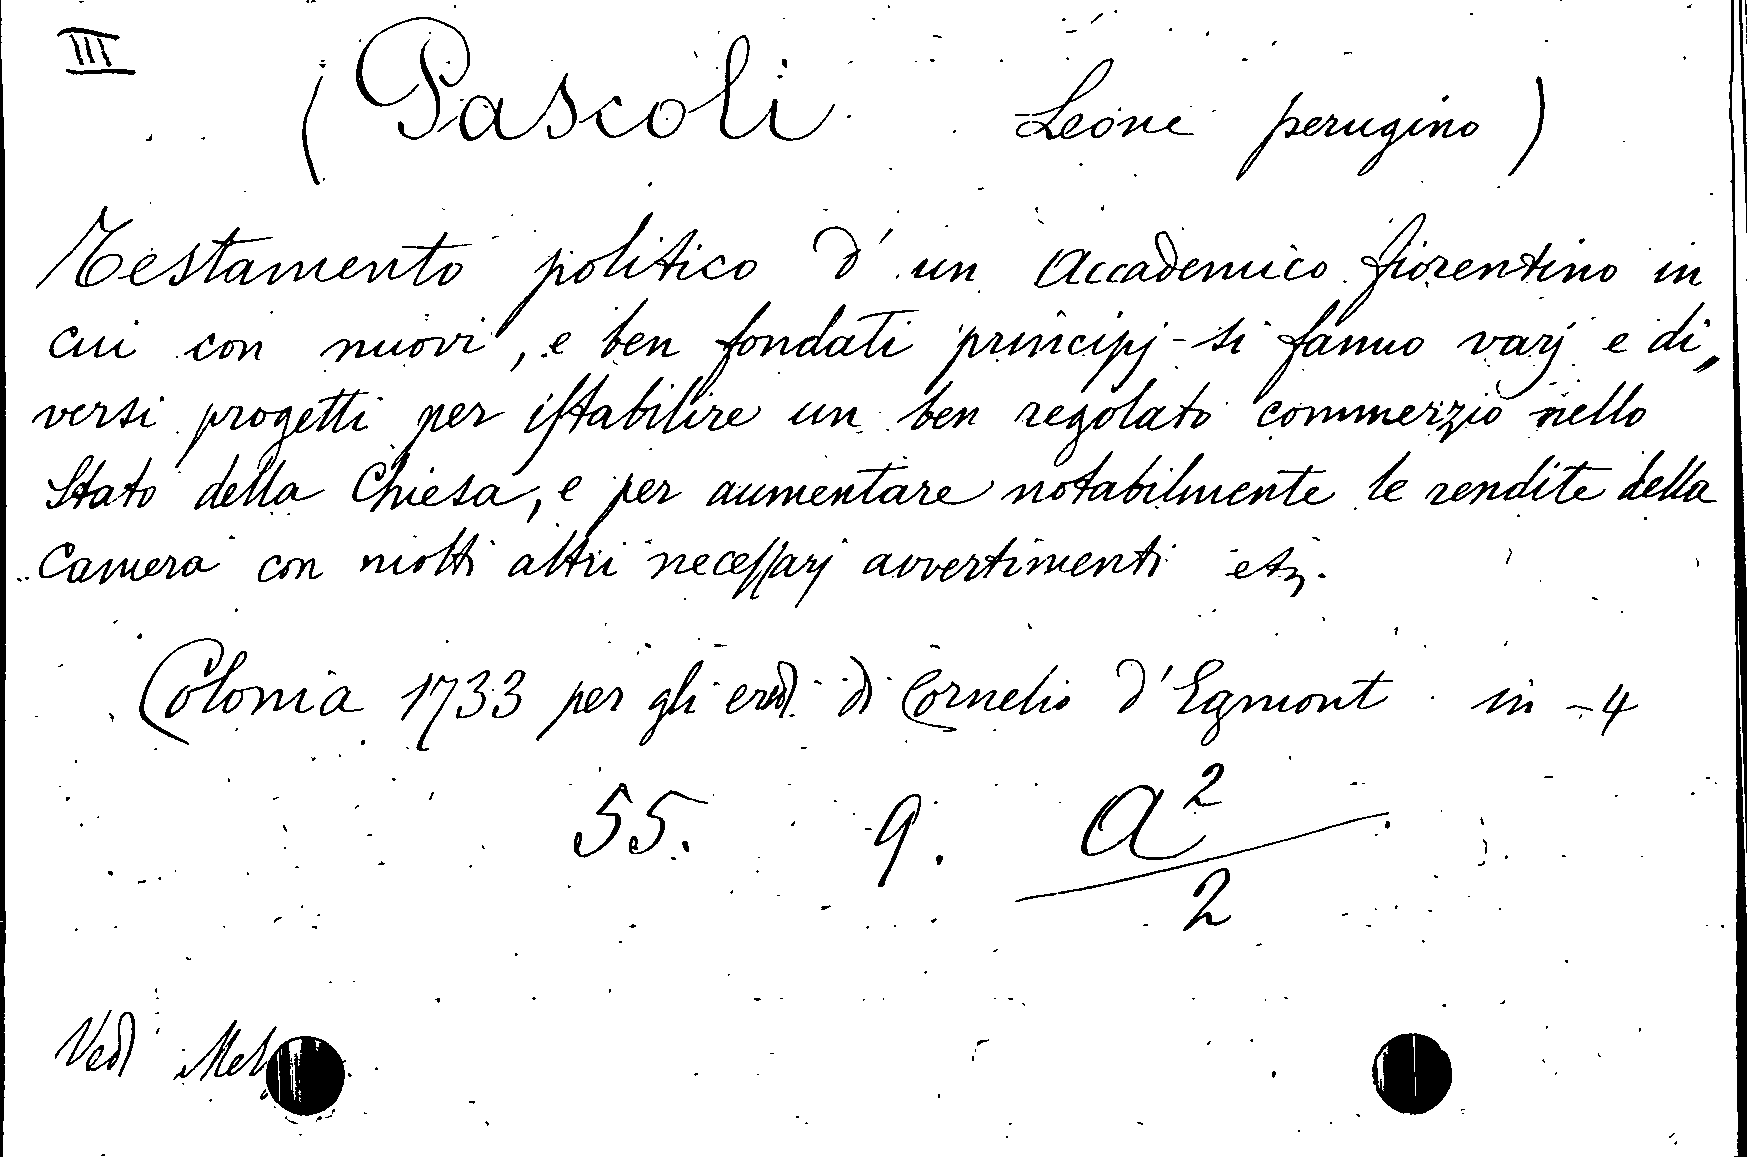 III
(Pascoli Leone perugino)
Testamento politico d' un Accademico fiorentino in
cui con nuovi, e ben fondati principj - si fanno varj e di„
versi progetti per istabilire un ben regolato commerzio nello
Stato della Chiesa, e per aumentare notabilmente le rendite della
Camera con molti altri necessarj avvertimenti etz.
Colonia 1733 per gli eredi di Cornelio d'Egmont in - 4
55. 9. a²/2
Vedi